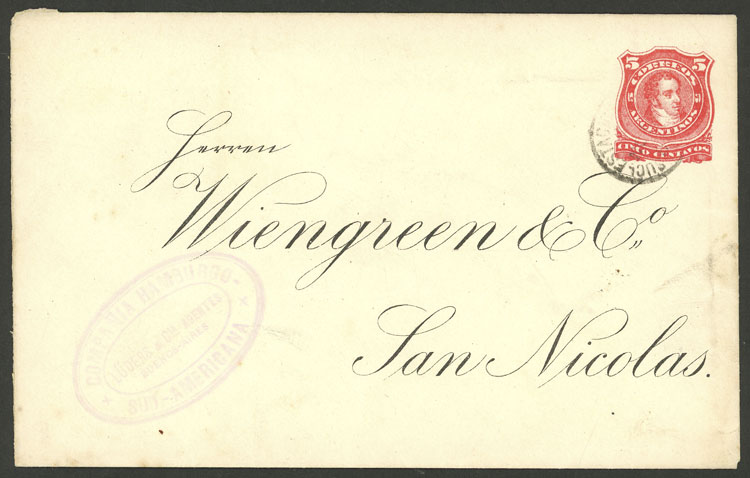 5 CORREOS 5
5 5
ARGENTINOS
CINCO CENTAVOS
Herren
Wiengreen & Co.,
San Nicolas.
COMPAÑIA HAMBURGO-
SUD-AMERICANA
AGENTES
BUENOS AIRES